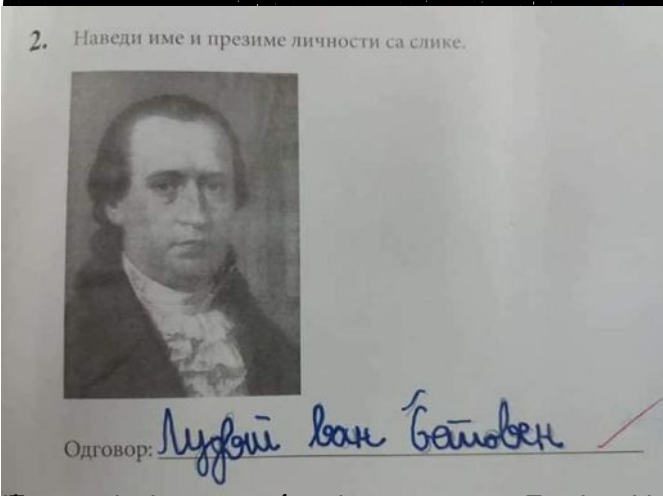 2. Наведи име и презиме личности са слике.
Одговор: Лудвиг ван Бетовен